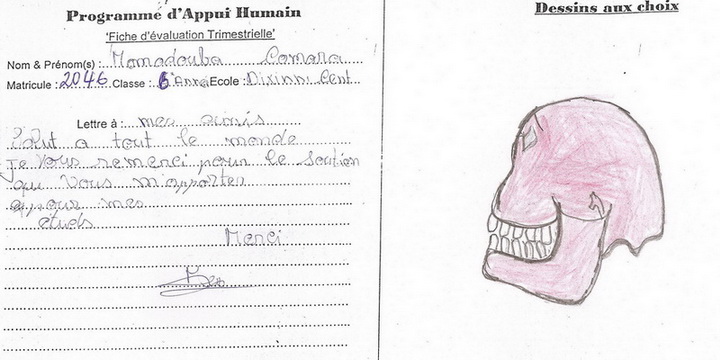 Programme d'Appui Humain
'Fiche d'évaluation Trimestrielle'
Nom & Prénom(s) : Mamadouba Camara
Matricule : 2046 Classe : 6 Anné Ecole : Dixinn Cent
Lettre à : mes amis
Salut a tout le monde
Je vous remerci pour le soution
que vous m'apporter
appour mes
etuds
Merci
Dessins aux choix